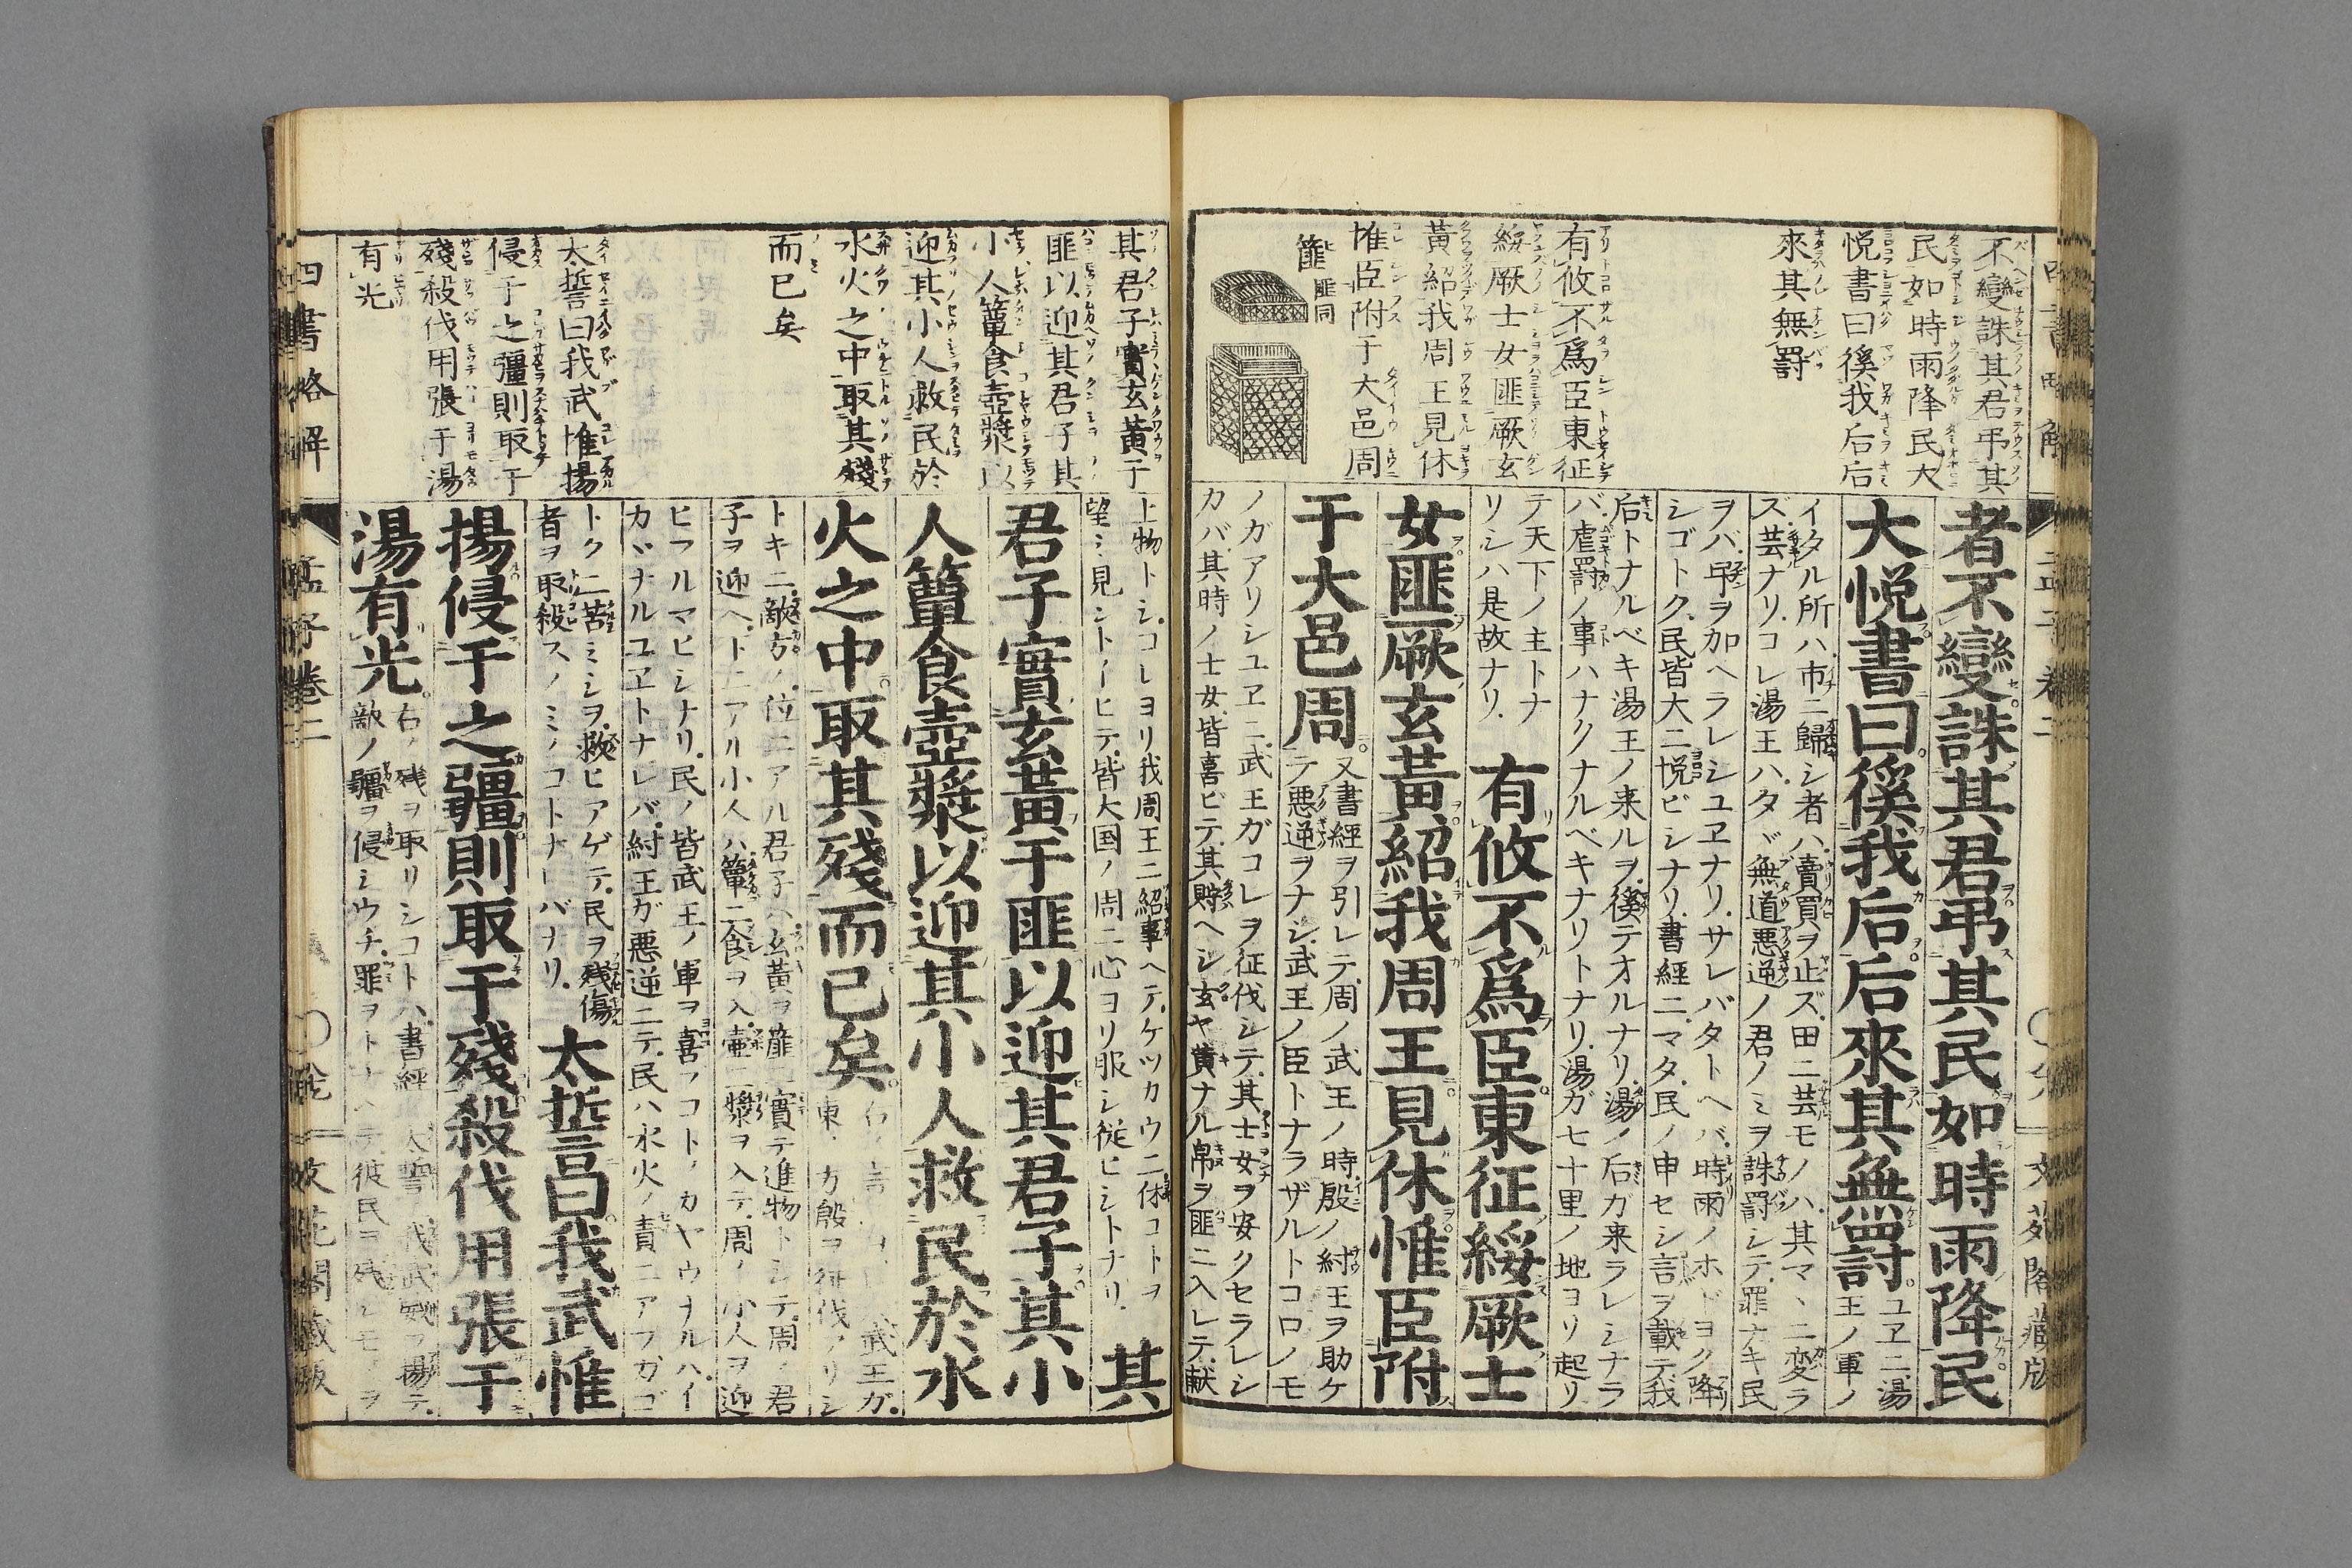 不變誅其君弔其
民如時雨降民大
悦書曰徯我后后
來其無罰
有攸不爲臣東征
綏厥士女匪厥玄
黃紹我周王見休
惟臣附于大邑周
篚 匪同
者不變誅其君弔其民如時雨降民
大悦書曰徯我后后來其無罰
ユヱニ湯
王ノ軍ノ
イタル所ハ市ニ歸シ者ハ賣買ヲ止ズ田ニ芸モノハ其マヽニ変ラ
ズ芸ナリコレ湯王ハタヾ無道悪逆ノ君ノミヲ誅罰シテ罪ナキ民
ヲバ弔ヲ加ヘラレシユヱナリサレバタトヘバ時雨ノホドヨク降
シゴトク民皆大ニ悦ビシナリ書經ニマタ民ノ申セシ言ヲ載テ我
后トナルベキ湯王ノ来ルヲ徯テオルナリ湯ノ后ガ来ラレシナラ
バ虐罰ノ事ハナクナルベキナリトナリ湯ガ七十里ノ地ヨリ起リ
テ天下ノ主トナ
リシハ是故ナリ
有攸不爲臣東征綏厥士
女匪厥玄黃紹我周王見休惟臣附
于大邑周
又書經ヲ引レテ周ノ武王ノ時殷ノ紂王ヲ助ケ
テ悪逆ヲナシ武王ノ臣トナラザルトコロノモ
ノガアリシユヱニ武王ガコレヲ征伐シテ其士女ヲ安クセラレシ
カバ其時ノ士女皆喜ビテ其貯ヘシ玄ヤ黄ナル帛ヲ匪ニ入レテ献
四書略解 孟子卷二 文苑閣藏版
其君子實玄黃于
匪以迎其君子其
小人簞食壺漿以
迎其小人救民於
水火之中取其殘
而已矣
太誓曰我武惟揚
侵于之疆則取于
殘殺伐用張于湯
有光
上物トシコレヨリ我周王ニ紹事ヘテケツカウニ休コトヲ
望ミ見シトイヒテ皆大国ノ周ニ心ヨリ服シ従ヒシトナリ
其
君子實玄黃于匪以迎其君子其小
人簞食壺漿以迎其小人救民於水
火之中取其殘而已矣
武王ガ
東ノ方殷ヲ征伐ノリシ
トキニ敵方ノ位ニアル君子ハ玄黄ヲ篚ニ實テ進物トシテ周ノ君
子ヲ迎ヘトニアル小人ハ簞ニ食ヲ入壷ニ漿ヲ入テ周ノ小人ヲ迎
ヒフルマヒシナリ民ノ皆武王ノ軍ヲ喜ノコトノカヤウナルハイ
カヾナルユヱトナレバ紂王ガ悪逆ニテ民ハ水火ノ責ニアフガゴ
トクニ苦ミシヲ救ヒアゲテ民ヲ残傷
者ヲ取殺スノミノコトナレバナリ
太誓曰我武惟
揚侵于之疆則取于殘殺伐用張于
湯有光
右ノ残ヲ取リシコトハ書經ノ太誓ニ我武威ヲ揚テ
敵ノ疆ヲ侵シウチ罪ヲ彼民ヲ残シモノヲ
四書略解 孟子卷二 文苑閣藏版